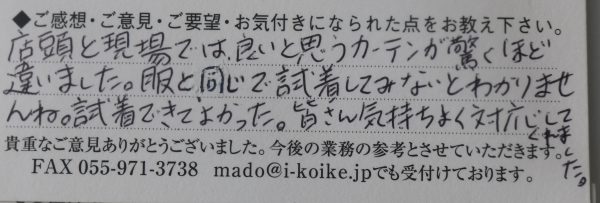 ◆ご感想・ご意見・ご要望・お気付きになられた点をお教え下さい。
店頭と現場では、良いと思うカーテンが驚くほど
違いました。服と同じで試着してみないとわかりませ
んね。試着できてよかった。皆さん気持ちよく対応して
くれました。
貴重なご意見ありがとうございました。今後の業務の参考とさせていただきます。
FAX 055-971-3738 mado@i-koike.jpでも受付ております。